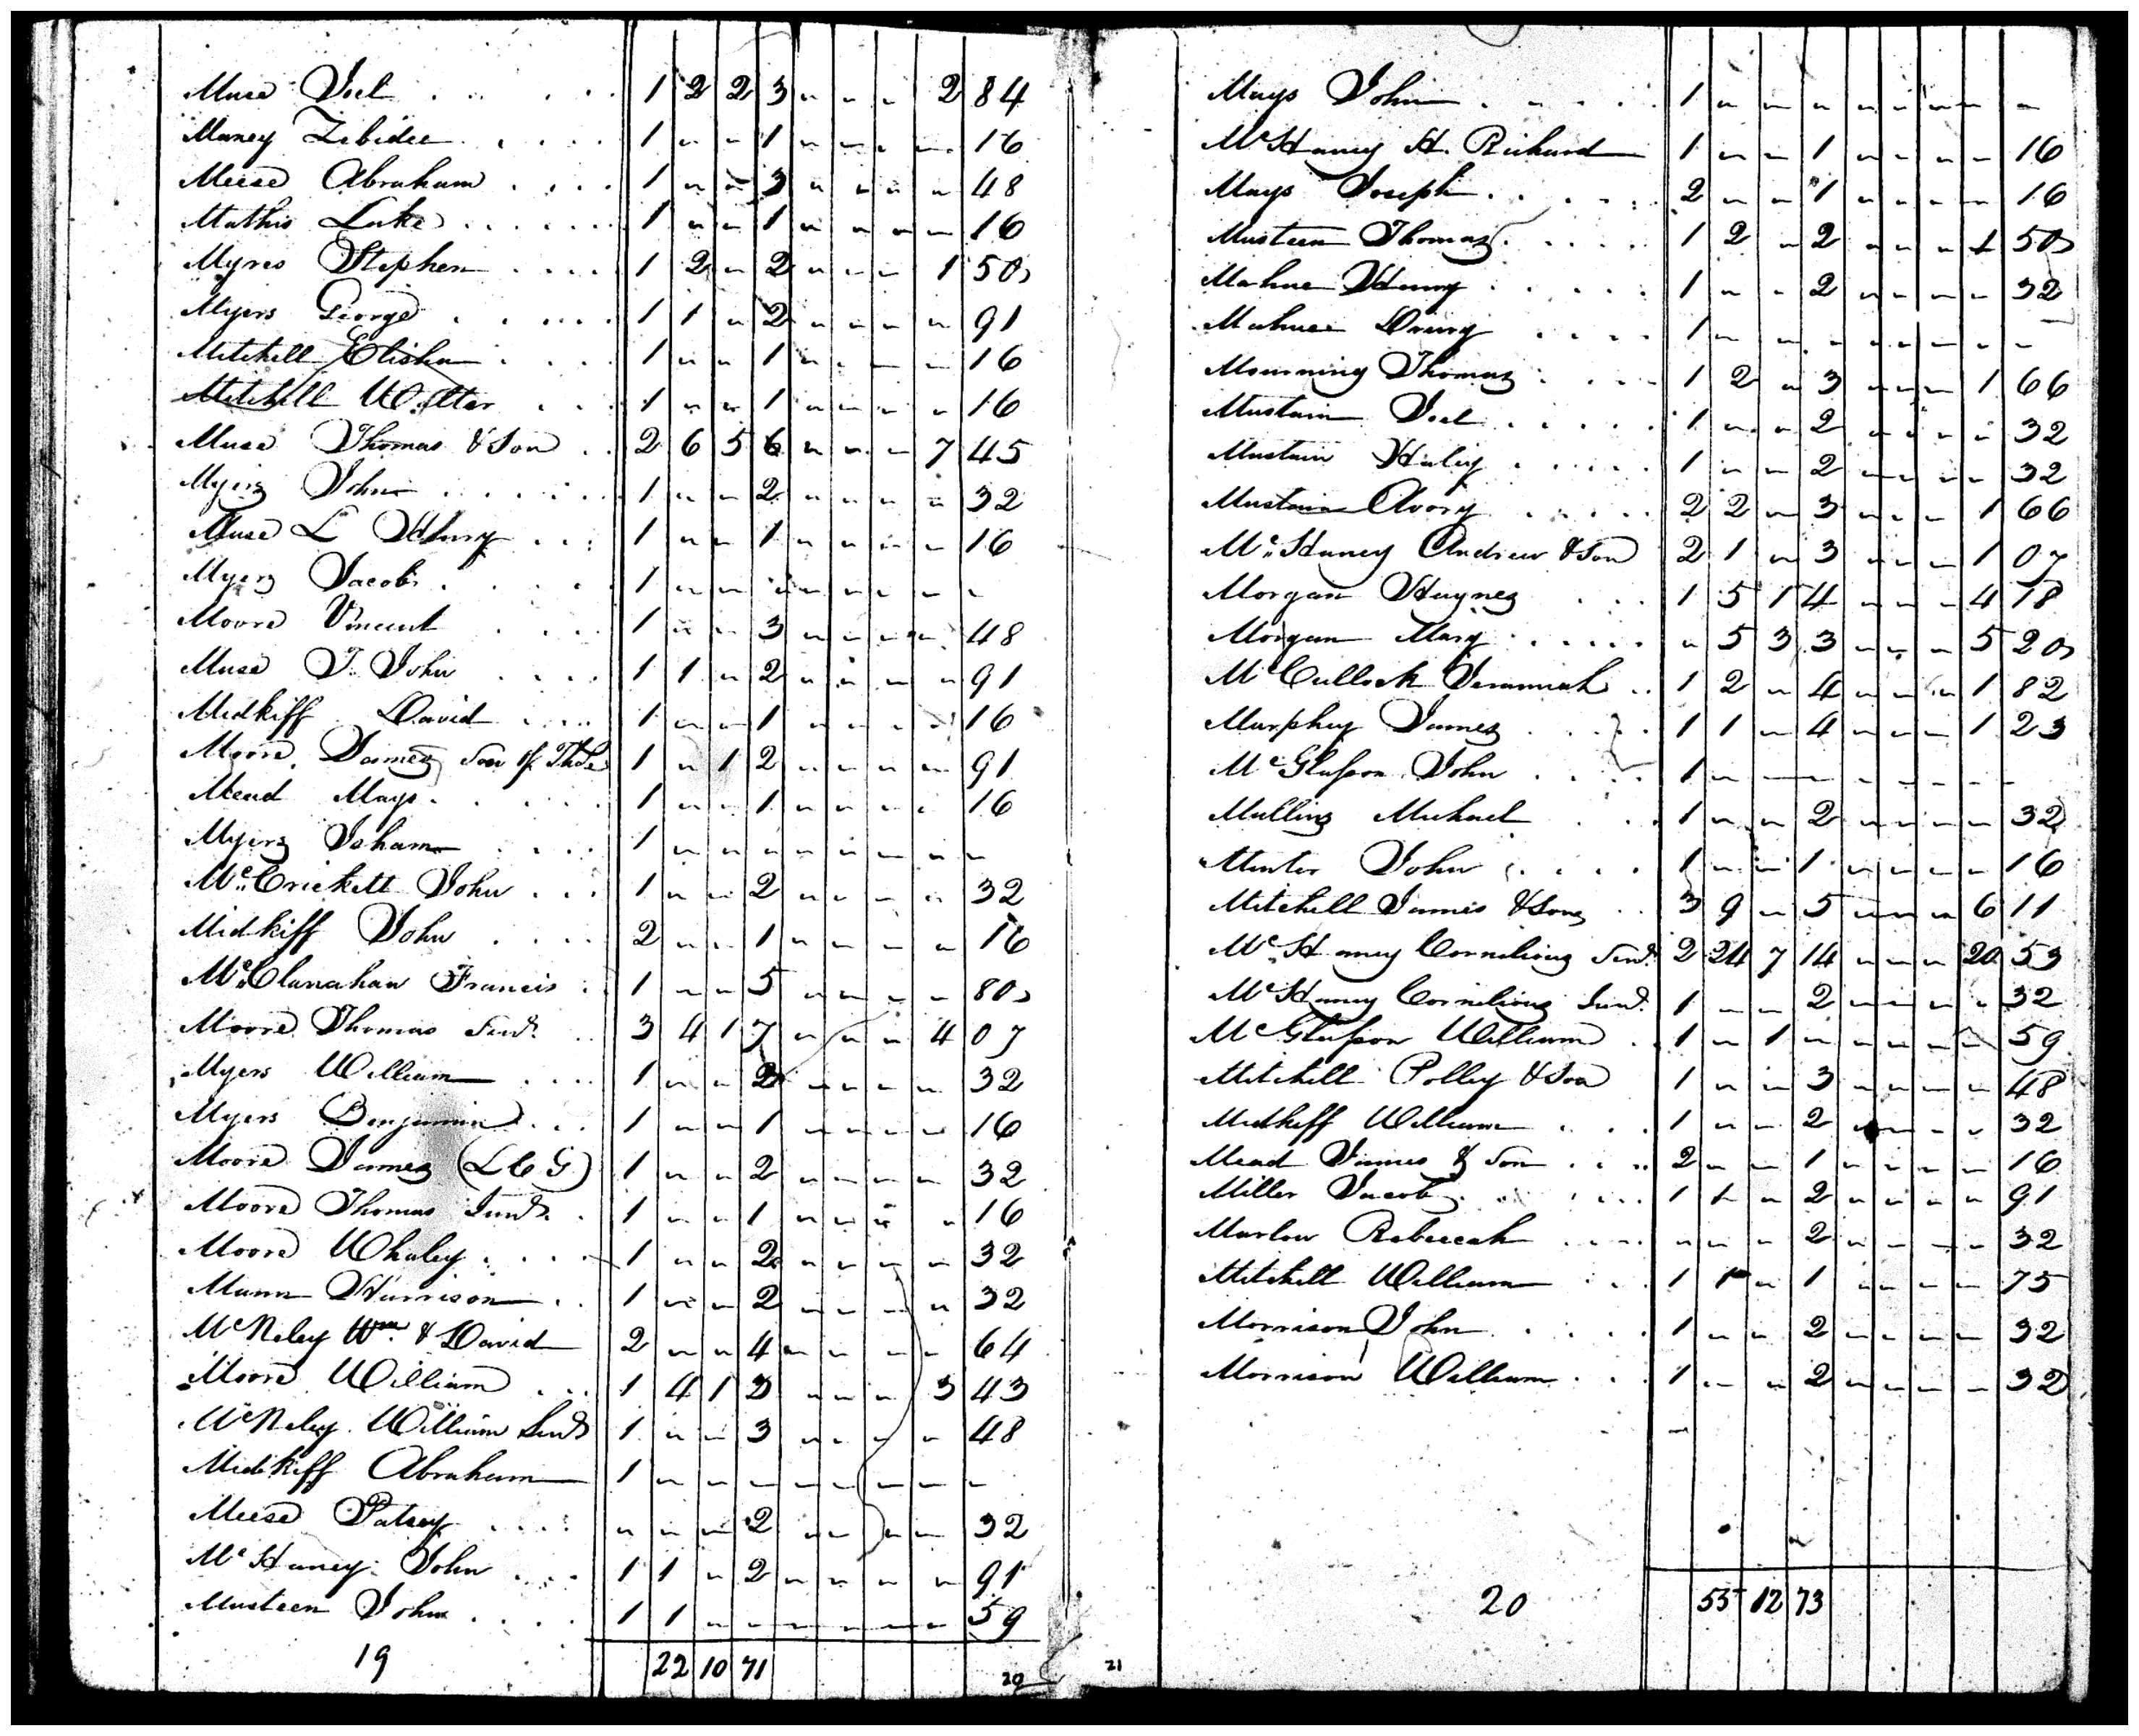 Muse Joel 1 2 2 3 " " " 2 84
Maney Zebidee 1 " " 1 " " " " 16
Meese Abraham 1 " " 3 " " " " 48
Mathis Luke 1 " " 1 " " " " 16
Myres Stephen 1 2 " 2 " " " 1 50
Myers George 1 1 " 2 " " " " 91
Mitchell Elisha 1 " " 1 " " " " 16
Mitchell Walter 1 " " 1 " " " " 16
Muse Thomas & Son 2 6 5 6 " " " 7 45
Myers John 1 " " 2 " " " " 32
Muse L Henry 1 " " 1 " " " " 16
Myers Jacob 1 " " " " " " " "
Moore Vincent 1 " " 3 " " " " 48
Muse T. John 1 1 " 2 " " " " 91
Midkiff David 1 " " 1 " " " " 16
Moore James Son of Thos 1 " 1 2 " " " " 91
Mead Mays 1 " " 1 " " " " 16
Myers Isham 1 " " " " " " " "
McCrickett John 1 " " 2 " " " " 32
Midkiff John 2 " " 1 " " " " 16
McClanahan Francis 1 " " 5 " " " " 80
Moore Thomas Senr 3 4 1 7 " " " 4 07
Myers William 1 " " 2 " " " " 32
Myers Benjamin 1 " " 1 " " " " 16
Moore James (L C G) 1 " " 2 " " " " 32
Moore Thomas Junr 1 " " 1 " " " " 16
Moore Whaley 1 " " 2 " " " " 32
Mann Harrison 1 " " 2 " " " " 32
McNeley Wm & David 2 " " 4 " " " " 64
Moore William 1 4 1 3 " " " 3 43
McNeley William Senr 1 " " 3 " " " " 48
Midkiff Abraham 1 " " " " " " " "
Meese Patsey " " " 2 " " " " 32
McHaney John 1 1 " 2 " " " " 91
Musteen John 1 1 " " " " " " 59
19 22 10 71
20
Mays John 1 " " " " " " " "
McHaney H. Richard 1 " " 1 " " " " 16
Mays Joseph 2 " " 1 " " " " 16
Musteen Thomas 1 2 " 2 " " " 1 50
Mahue Henry 1 " " 2 " " " " 32
Mahue Drury 1 " " " " " " " "
Mourning Thomas 1 2 " 3 " " " 1 66
Mustain Joel 1 " " 2 " " " " 32
Mustain Haley 1 " " 2 " " " " 32
Mustain Avory 2 2 " 3 " " " 1 66
McHaney Andrew & Son 2 1 " 3 " " " 1 07
Morgan Haynes 1 5 1 4 " " " 4 18
Morgan Mary " 5 3 3 " " " 5 20
McCullock Jeramiah 1 2 " 4 " " " 1 82
Murphy James 1 1 " 4 " " " 1 23
McGlasson John 1 " " " " " " "
Mullins Michael 1 " " 2 " " " " 32
Minter John 1 " " 1 " " " " 16
Mitchell James & Sons 3 9 " 5 " " " 6 11
McHaney Cornelious Senr 2 24 7 14 " " " 20 53
McHaney Cornelious Junr 1 " " 2 " " " " 32
McGlasson William 1 " 1 " " " " " 59
Mitchell Polley & Son 1 " " 3 " " " " 48
Midkiff William 1 " " 2 " " " " 32
Mead James & Son 2 " " 1 " " " " 16
Miller Jacob 1 1 " 2 " " " " 91
Marlow Rebeccah " " " 2 " " " " 32
Mitchell William 1 1 " 1 " " " " 75
Morrison John 1 " " 2 " " " " 32
Morrison William 1 " " 2 " " " " 32
20 55 12 73
21